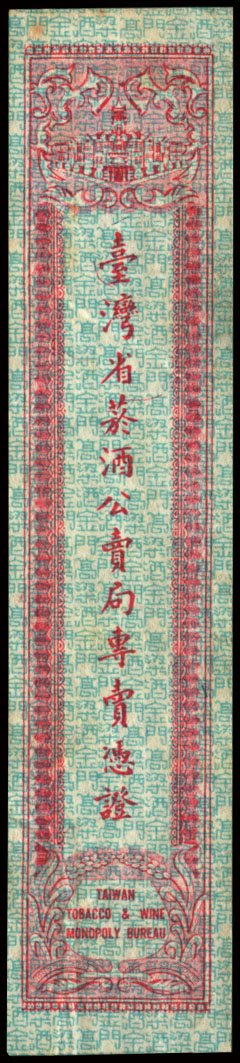 臺灣省菸酒公賣局專賣憑證
TAIWAN
TOBACCO & WINE
MONOPOLY BUREAU
金門高梁酒